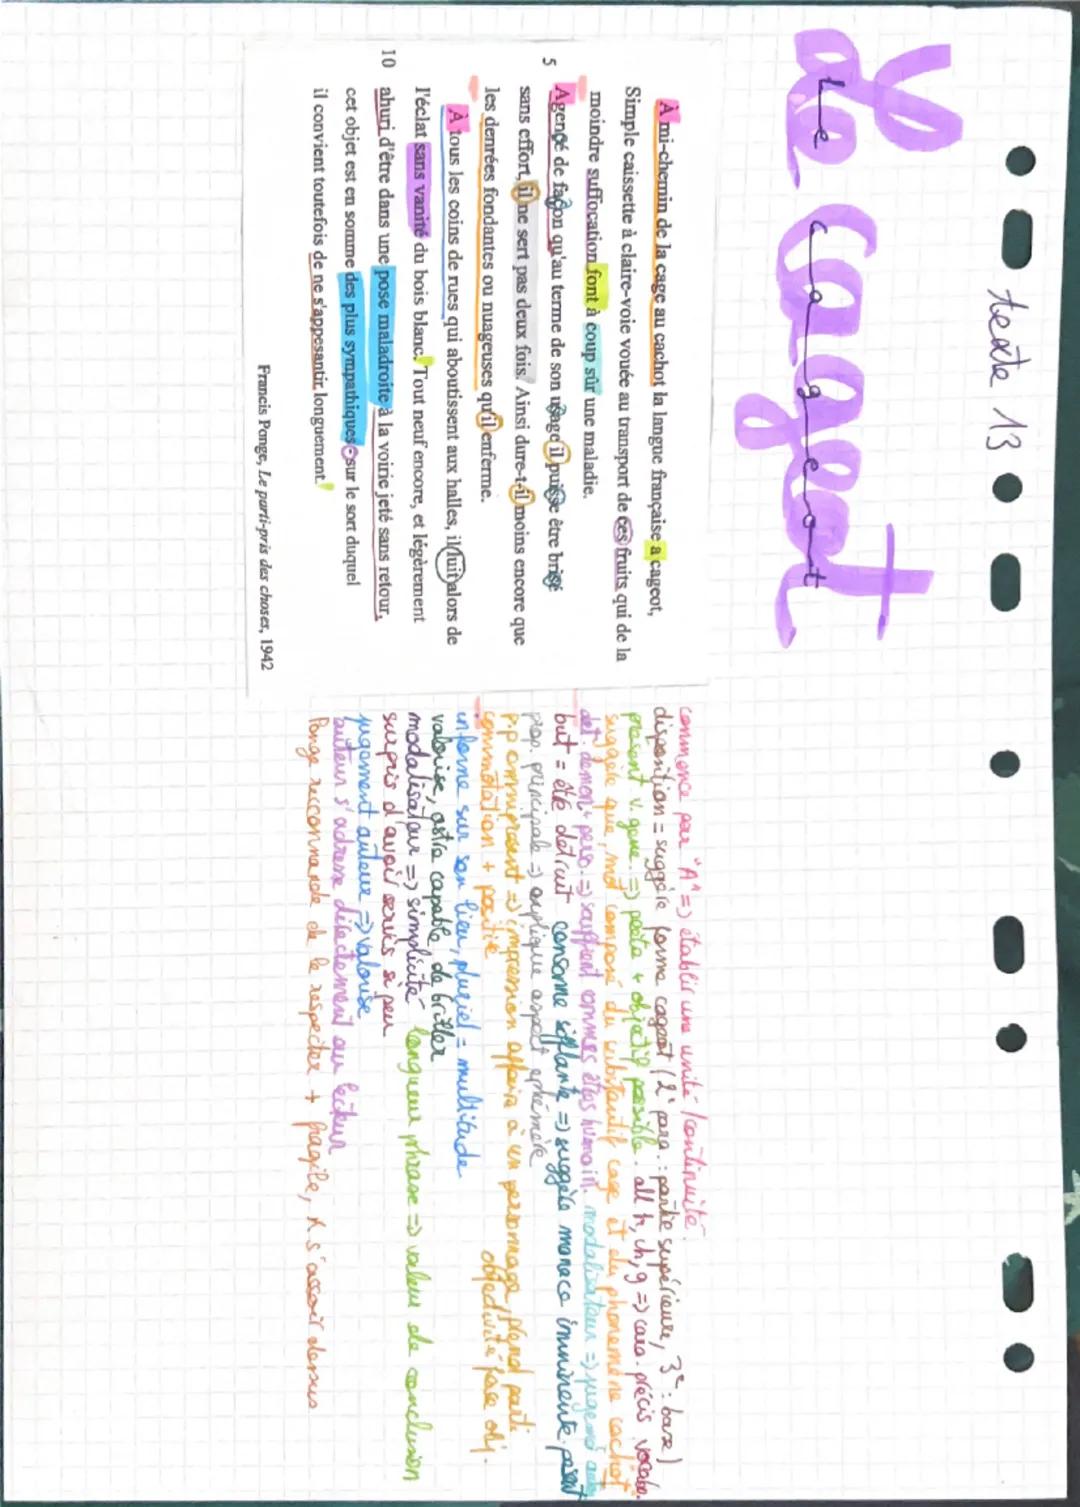 texte 13
Le cageot
À mi-chemin de la cage au cachot la langue française a cageot,
Simple caissette à claire-voie vouée au transport de ces fruits qui de la
moindre suffocation font à coup sûr une maladie.
5 Agencé de façon qu'au terme de son usage il puisse être brisé
sans effort, il ne sert pas deux fois. Ainsi dure-t-il moins encore que
les denrées fondantes ou nuageuses qu'il enferme.
À tous les coins de rues qui aboutissent aux halles, il luit alors de
l'éclat sans vanité du bois blanc. Tout neuf encore, et légèrement
10 ahuri d'être dans une pose maladroite à la voirie jeté sans retour,
cet objet est en somme des plus sympathiques - sur le sort duquel
il convient toutefois de ne s'appesantir longuement.
Francis Ponge, Le parti-pris des choses, 1942
commence par "A" => établir une unité / continuité.
disposition = suggère forme cageot ( para. : partie supérieure, 3e : base)
présent v. géné. => poète + objectif possible. all h, ch, g => cara. précis vocabu.
suggère que mot composé du substantif cage et du phonemène cachot
det. démon + perso. => souffrent commes êtres humain. modalisateur => jugemt
but = été détruit consonne sifflante => suggère menace imminente. pesant
prop. principale => explique aspect éphémère
p.p omniprésent => impression affaire à un personnage, prend parti
connotation + positive objectivité face obj.
informe sur son lieu, pluriel = multitude
valorise, astre capable de briller
modalisateur => simplicité longueur phrase => valeur de conclusion
surpris d'avoir servis si peu
jugement auteur => valorise
auteur s'adresse directement au lecteur
Ponge reccomande de le respecter + fragile, s'assoir dessus